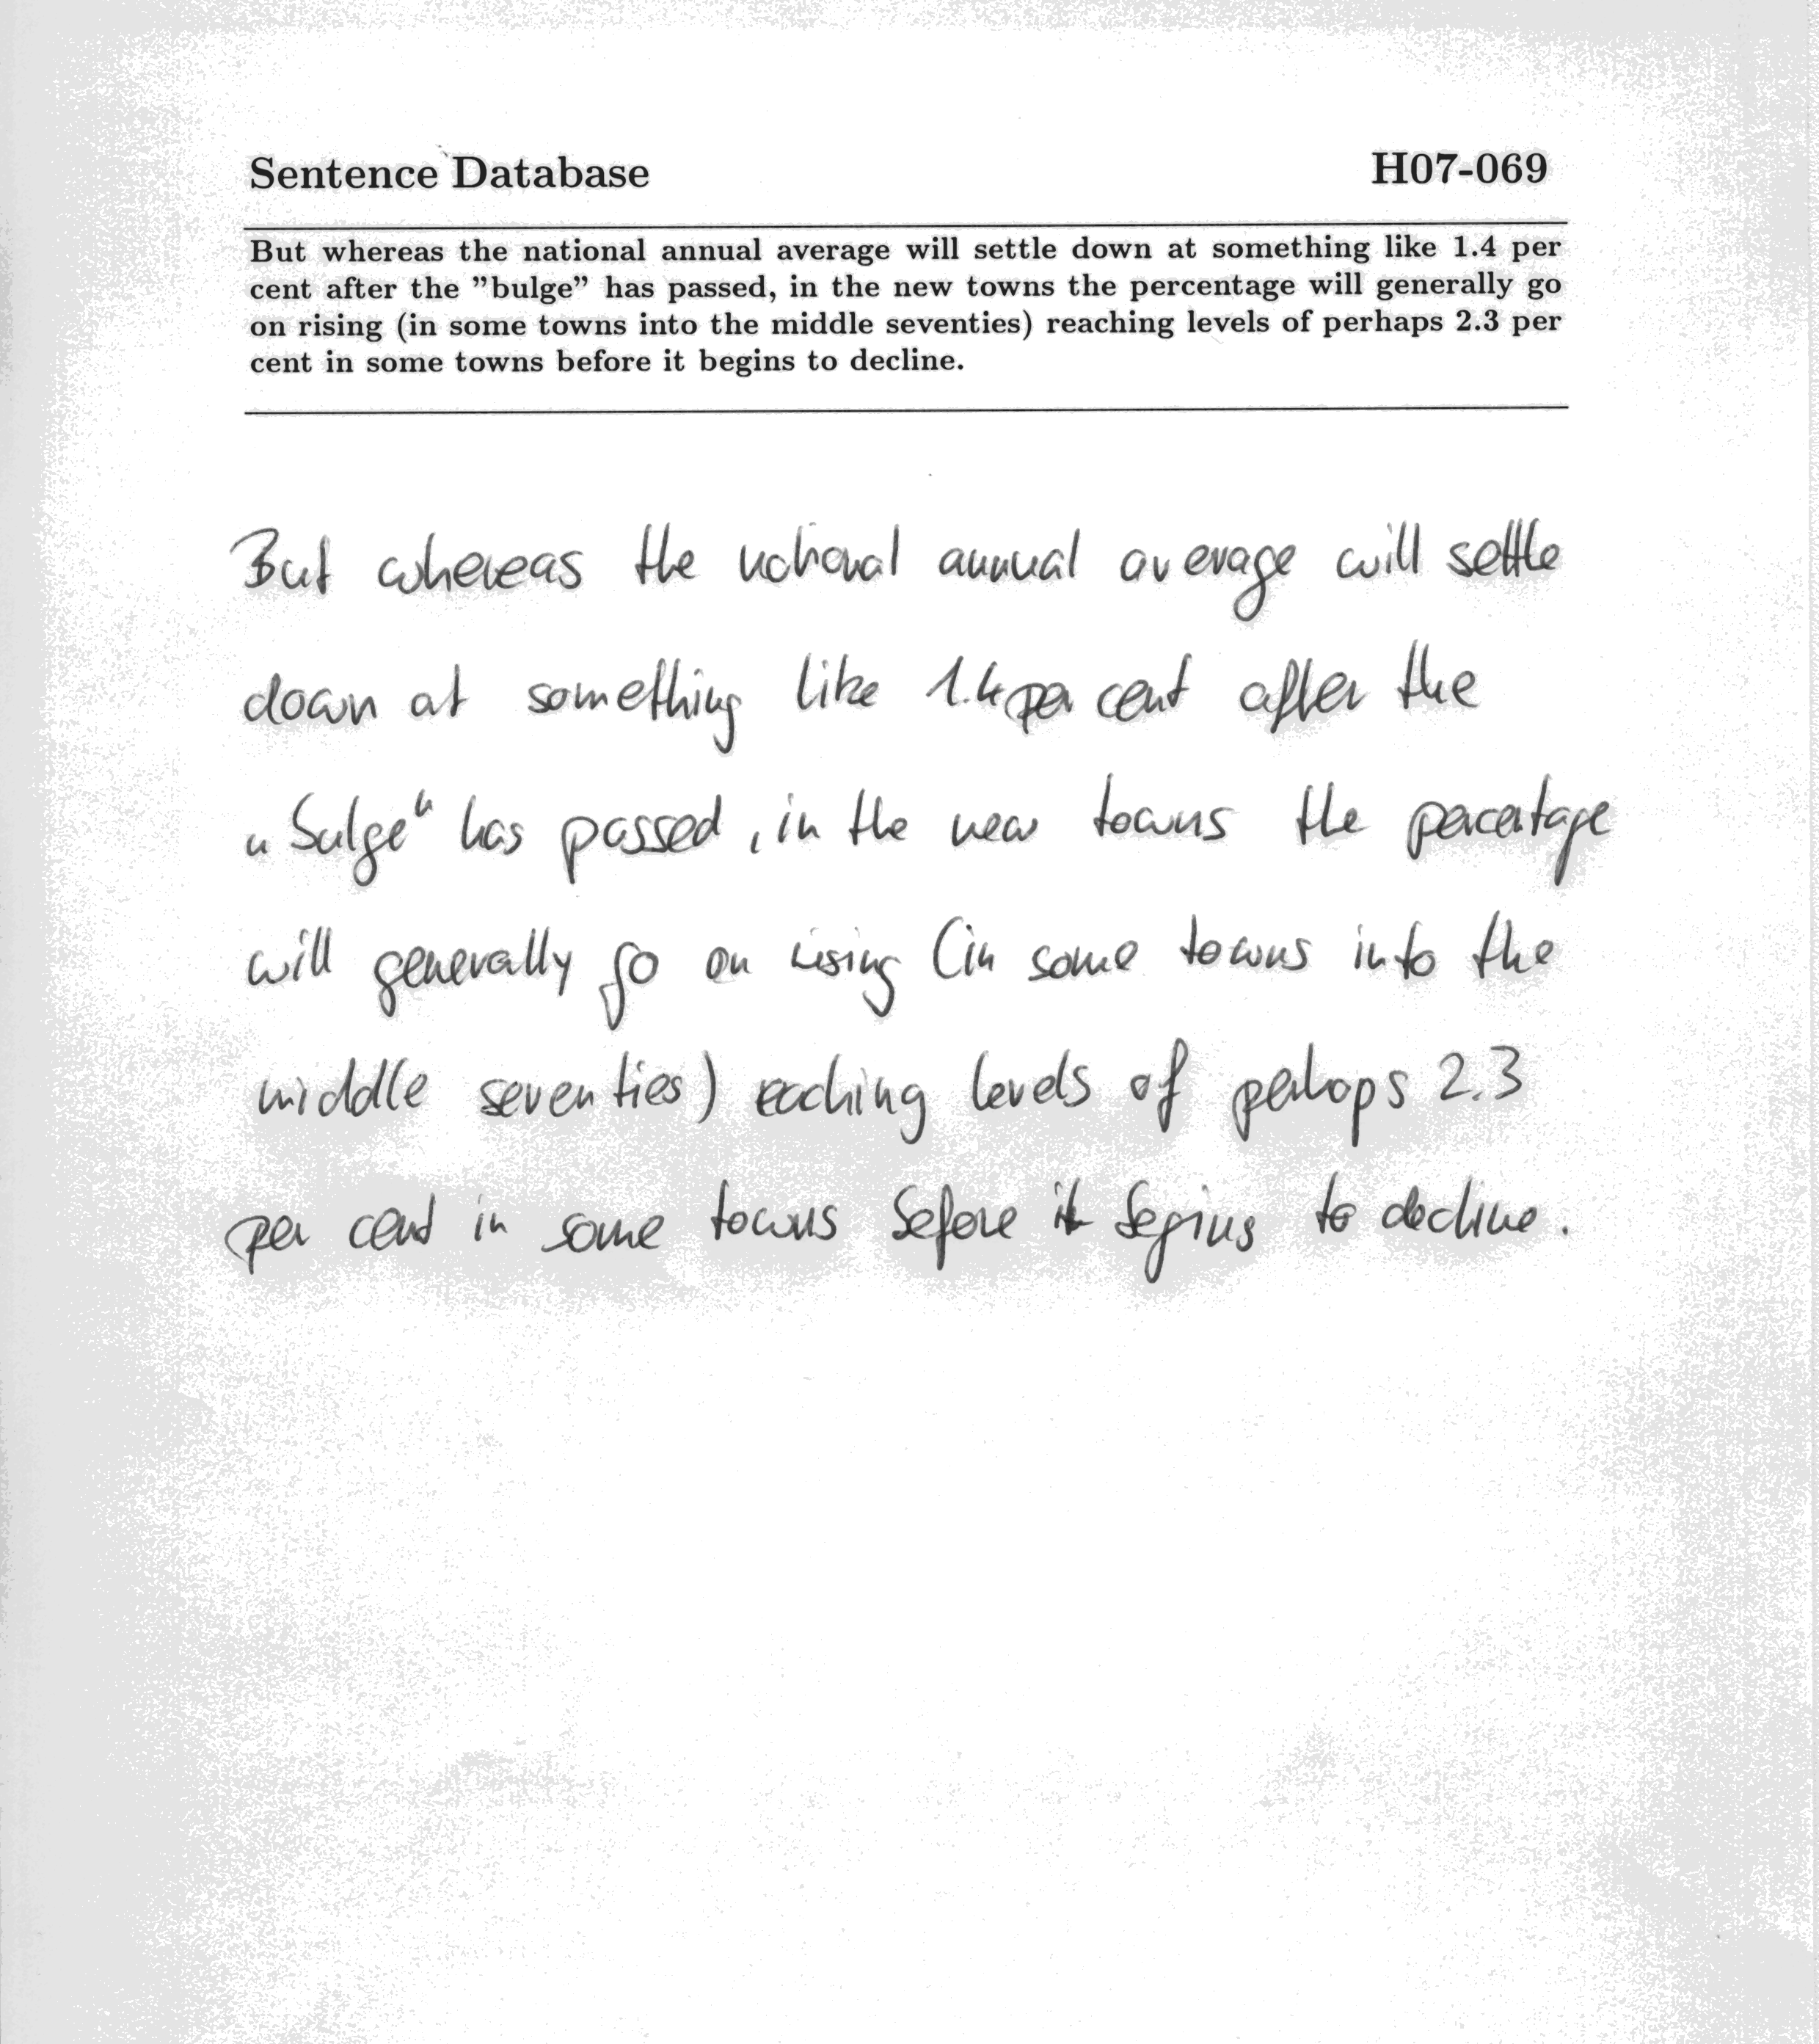 Sentence Database H07-069
But whereas the national annual average will settle down at something like 1.4 per
cent after the ”bulge” has passed, in the new towns the percentage will generally go
on rising (in some towns into the middle seventies) reaching levels of perhaps 2.3 per
cent in some towns before it begins to decline.
But whereas the national annual average will settle
down at something like 1.4 per cent after the
„bulge“ has passed, in the new towns the percentage
will generally go on rising (in some towns into the
middle seventies) reaching levels of perhaps 2.3
per cent in some towns before it begins to decline.